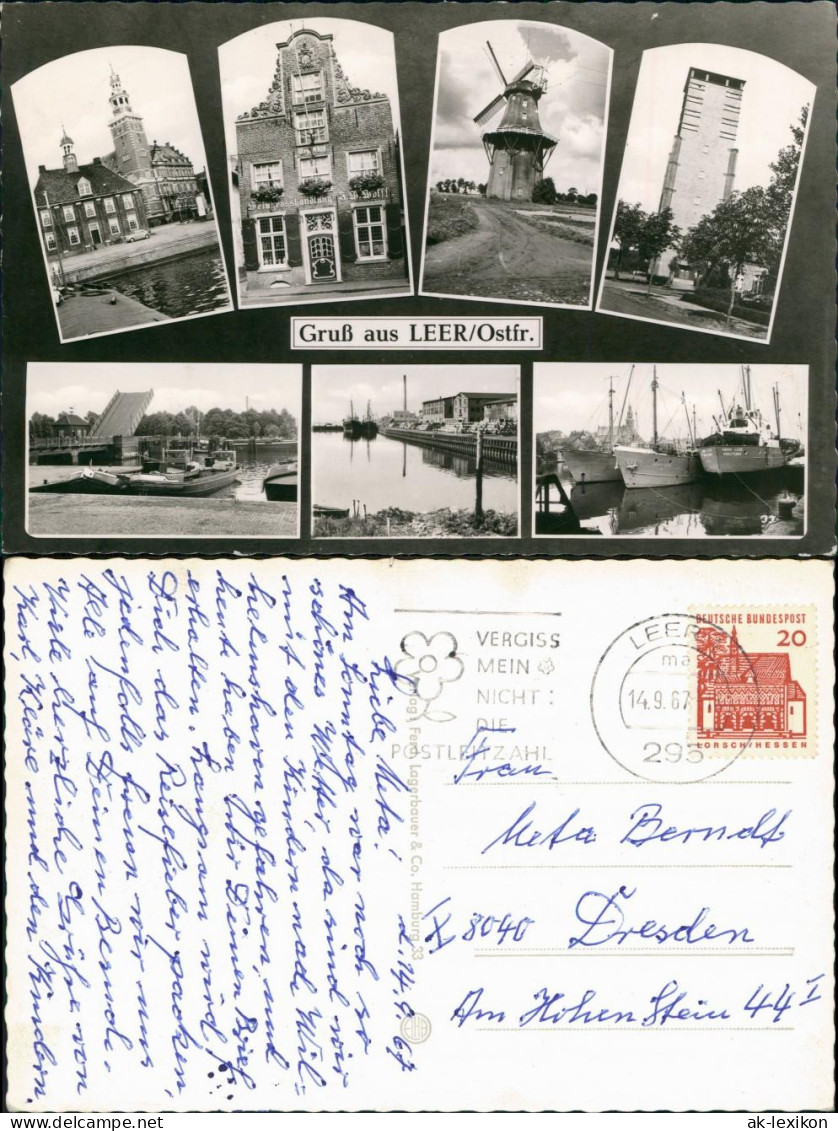 Weingrosshandlung J.W. Wolff
Gruß aus LEER/Ostfr.
d. 14. 9. 67
Liebe Meta!
Am Sonntag war noch so
schönes Wetter, da sind wir
mit den Kindern nach Wil=
helmshaven gefahren, und
heute haben wir Deinen Brief
erhalten. Langsam wird
Dich das Reisefieber packen,
jedenfalls freuen wir uns
Alle auf Deinen Besuch.
Viele herzliche Grüße von
Karl, Kläre und den Kindern.
Verlag Ferd. Lagerbauer & Co. Hamburg 33
VERGISS
MEIN
NICHT:
DIE
POSTLEITZAHL
LEER
14.9.67
295
DEUTSCHE BUNDESPOST
20
LORSCH/HESSEN
Frau
Meta Berndt
X 8040 Dresden
Am Hohen Stein 44 I
ak-lexikon